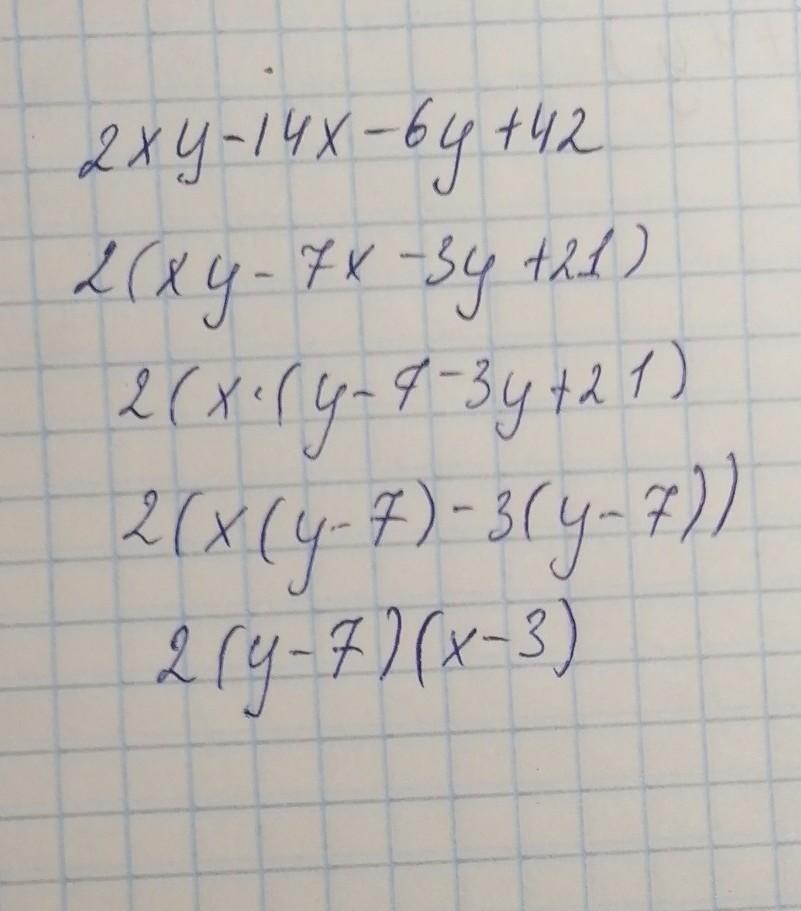 2xy-14x-6y+42
2(xy-7x-3y+21)
2(x·(y-7-3y+21)
2(x(y-7)-3(y-7))
2(y-7)(x-3)